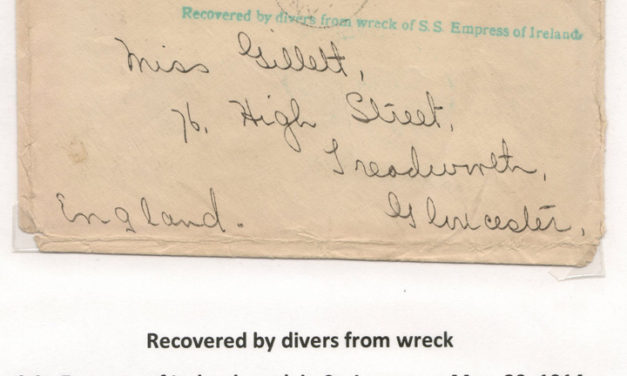 Recovered by divers from wreck of S.S. Empress of Ireland
Miss Gillett,
76, High Street,
Treadworth,
England.
Gloucester,
Recovered by divers from wreck